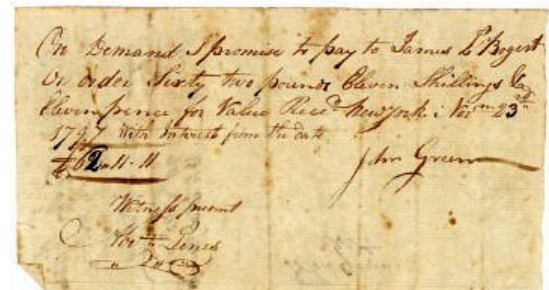 On Demand I promise to pay to James Bogert
or order Sixty two pounds Eleven Shillings
Eleven pence for Value Recd New York Novm 23
1797 with Interest from the date
£62-11-11
John Green
Witness present